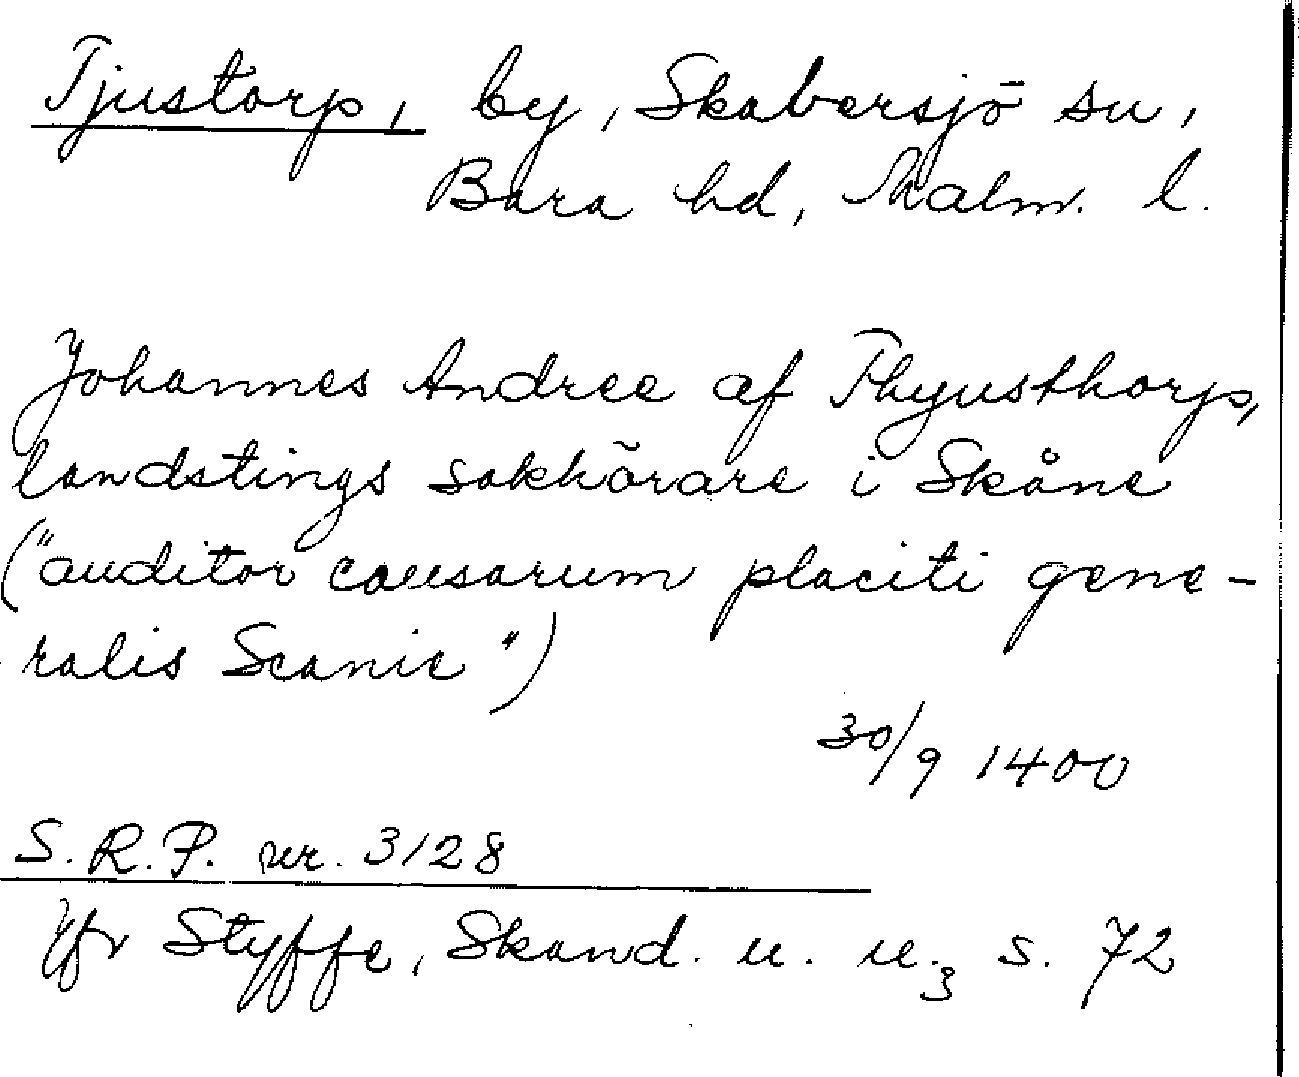 Tjustorp, by, Skabersjö sn,
Bara hd, Malm. l.
Johannes Andree af Thyusthorp,
landstings sakhörare i Skåne
("auditor causarum placiti gene-
ralis Scanie")
30/9 1400
S.R.P. nr. 3128
Jfr Styffe, Skand. u. u.3 s. 72